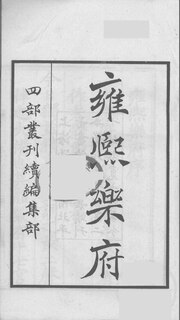 雍熙樂府
四部叢刊續編集部